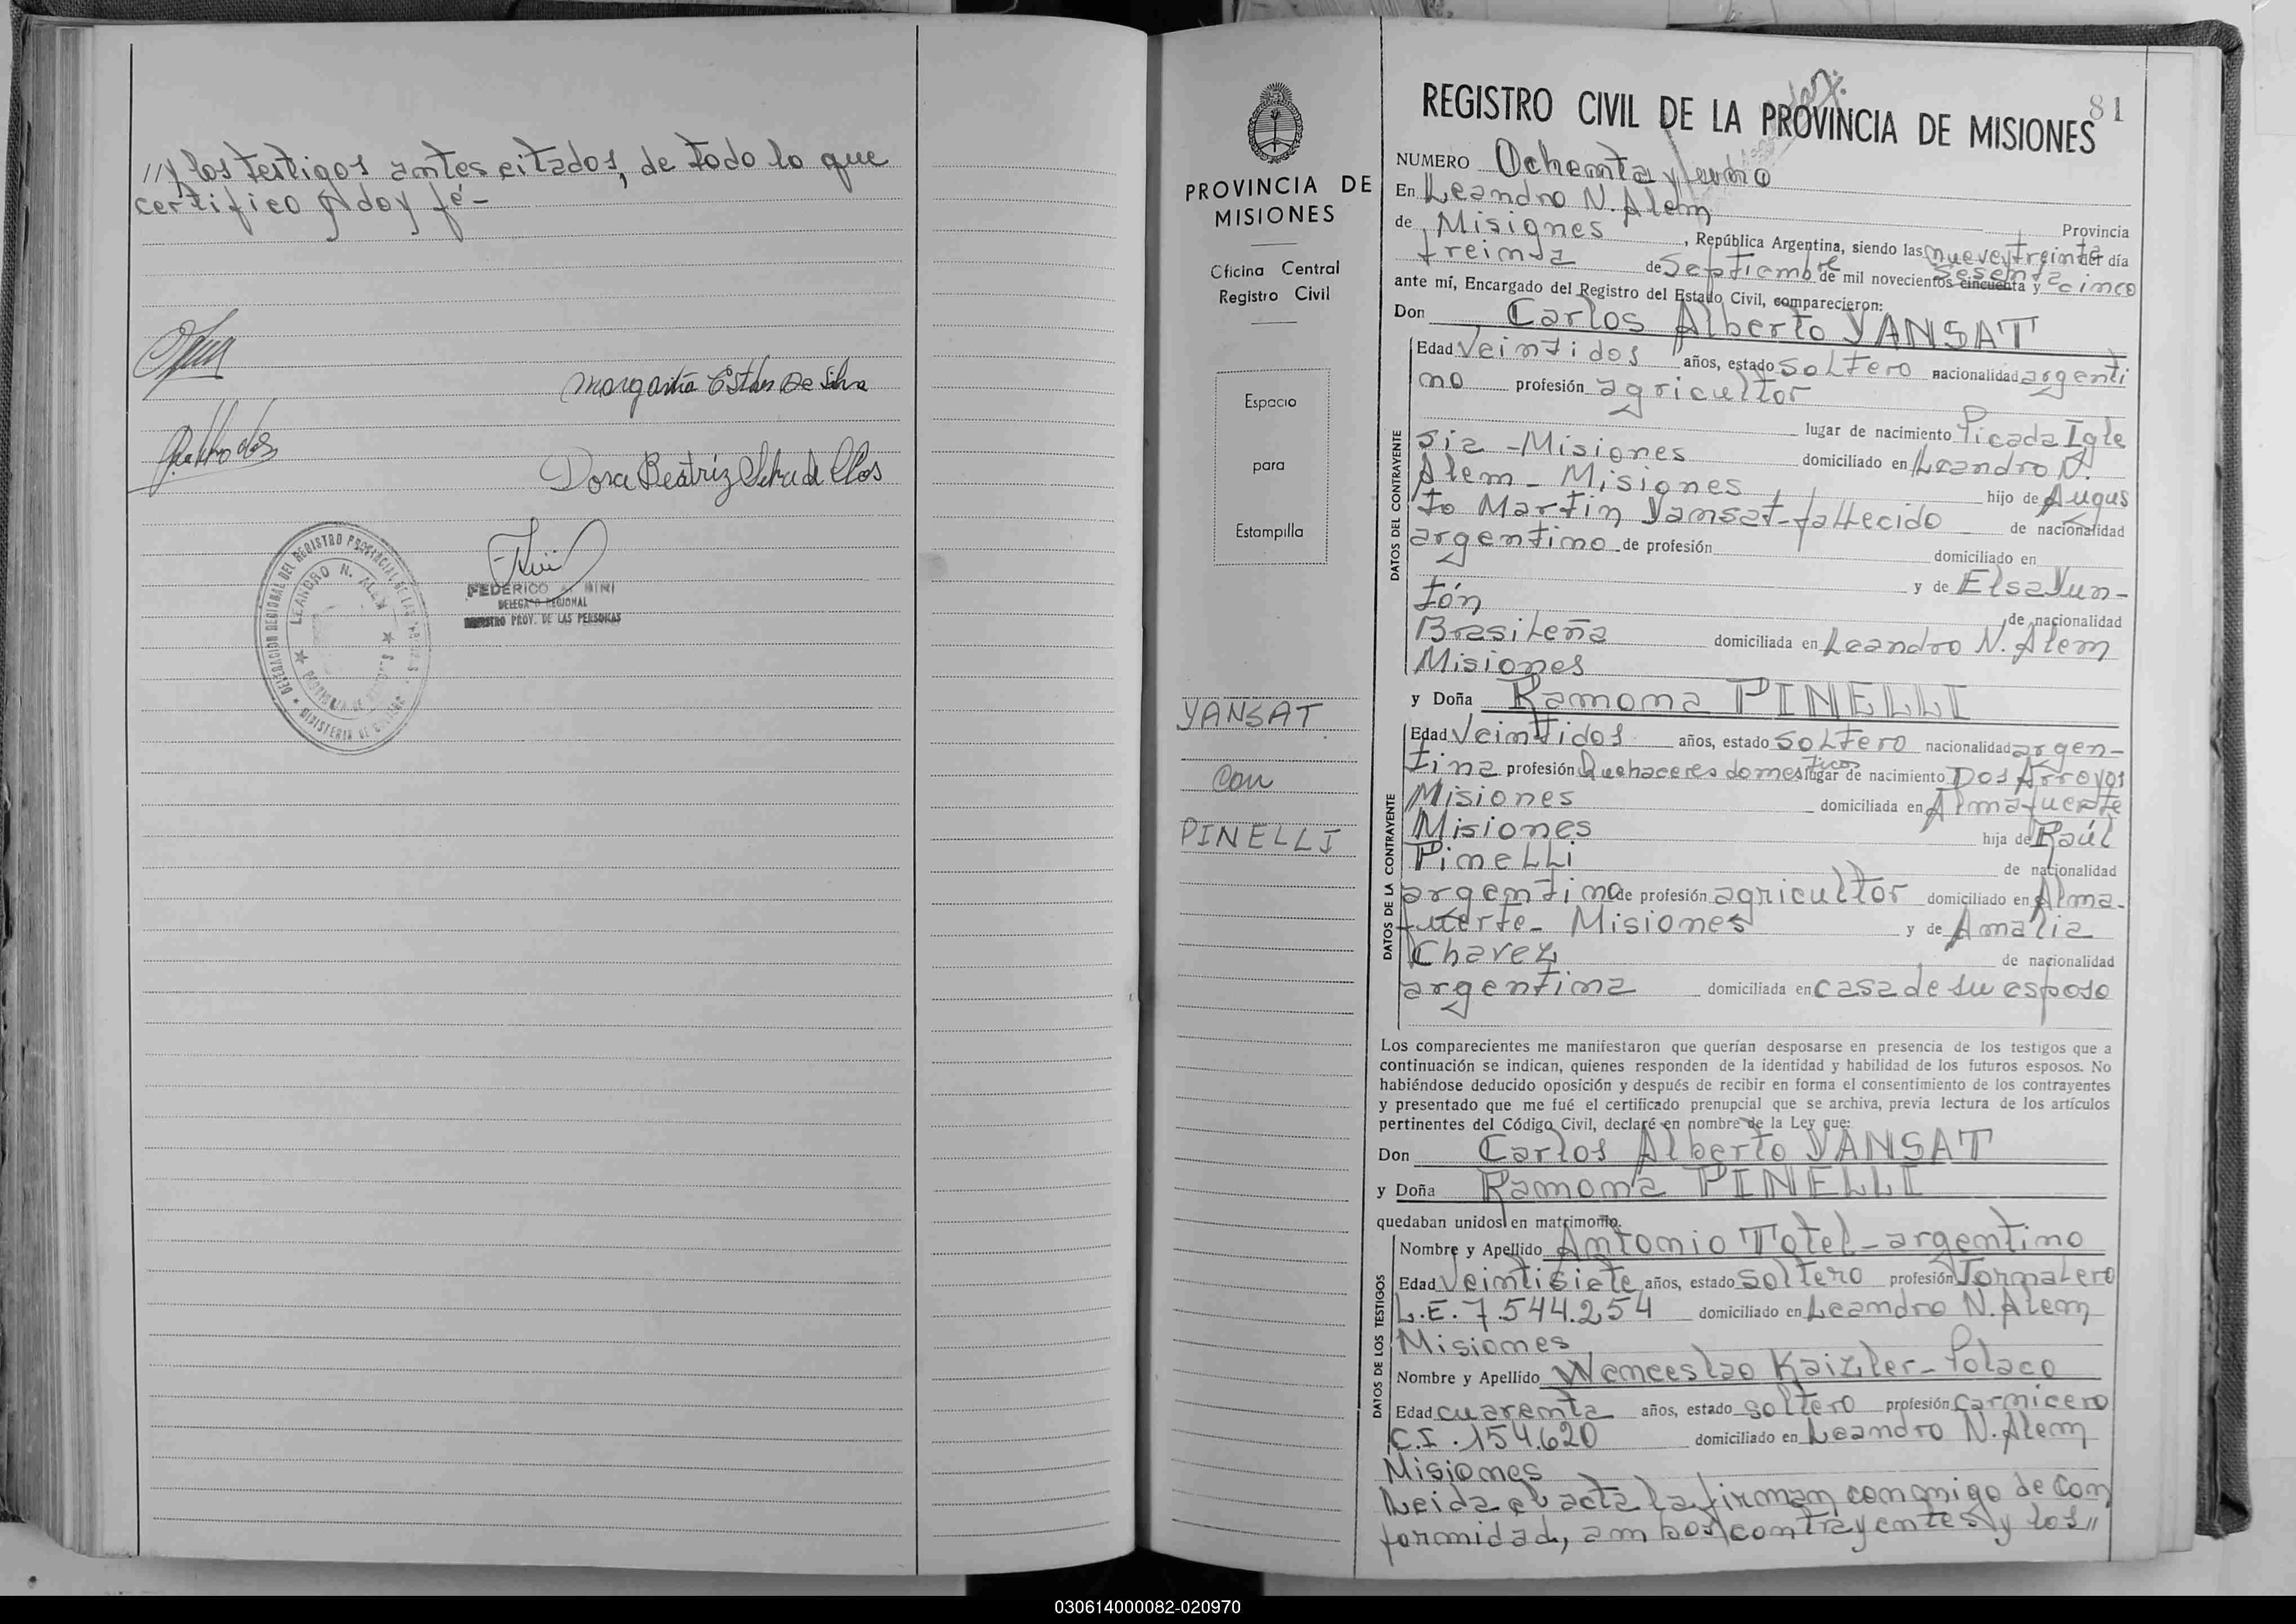 // y los testigos antes citados, de todo lo que
certifico y doy fé-
Margarita Esther De Silva
Dora Beatriz Silva de Clos
FEDERICO A. MINI
DELEGADO REGIONAL
REGISTRO PROV. DE LAS PERSONAS
DELEGACION REGIONAL DEL REGISTRO PROVINCIAL DE LAS
LEANDRO N. ALEM
MINISTERIO DE GOBIERNO
PROVINCIA DE
MISIONES
Oficina Central
Registro Civil
Espacio
para
Estampilla
YANSAT
con
PINELLI
81
REGISTRO CIVIL DE LA PROVINCIA DE MISIONES
NUMERO Ochenta y uno
En Leandro N. Alem
Provincia
de Misiones, República Argentina, siendo las nueve y treinta del día
treinta de Septiembre de mil novecientos cincuenta y sesenta cinco
ante mí, Encargado del Registro del Estado Civil, comparecieron:
Don Carlos Alberto YANSAT
DATOS DEL CONTRAYENTE
Edad Veintidos años, estado soltero nacionalidad argenti
no profesión agricultor
lugar de nacimiento Picada Igle
sia - Misiones domiciliado en Leandro N.
Alem - Misiones hijo de Augus
to Martin Yansat - fallecido de nacionalidad
argentino de profesión domiciliado en
y de Elsa Yun-
tón de nacionalidad
Brasileña domiciliada en Leandro N. Alem
Misiones
y Doña Ramona PINELLI
DATOS DE LA CONTRAYENTE
Edad Veintidos años, estado soltero nacionalidad argen-
tina profesión Quehaceres domesticos lugar de nacimiento Dos Arroyos
Misiones domiciliada en Almafuerte
Misiones hija de Raúl
Pinelli de nacionalidad
argentino de profesión agricultor domiciliado en Alma-
fuerte - Misiones y de Amalia
Chavez de nacionalidad
argentina domiciliada en casa de su esposo
Los comparecientes me manifestaron que querían desposarse en presencia de los testigos que a
continuación se indican, quienes responden de la identidad y habilidad de los futuros esposos. No
habiéndose deducido oposición y después de recibir en forma el consentimiento de los contrayentes
y presentado que me fué el certificado prenupcial que se archiva, previa lectura de los artículos
pertinentes del Código Civil, declaré en nombre de la Ley que:
Don Carlos Alberto YANSAT
y Doña Ramona PINELLI
quedaban unidos en matrimonio.
DATOS DE LOS TESTIGOS
Nombre y Apellido Antonio Totel - argentino
Edad Veintisiete años, estado soltero profesión Jornalero
L.E. 7.544.254 domiciliado en Leandro N. Alem
Misiones
Nombre y Apellido Wenceslao Kaizler - Polaco
Edad cuarenta años, estado soltero profesión carnicero
C.I. 154.620 domiciliado en Leandro N. Alem
Misiones
Leida el acta la firman conmigo de con
formidad, ambos contrayentes y los //
030614000082-020970